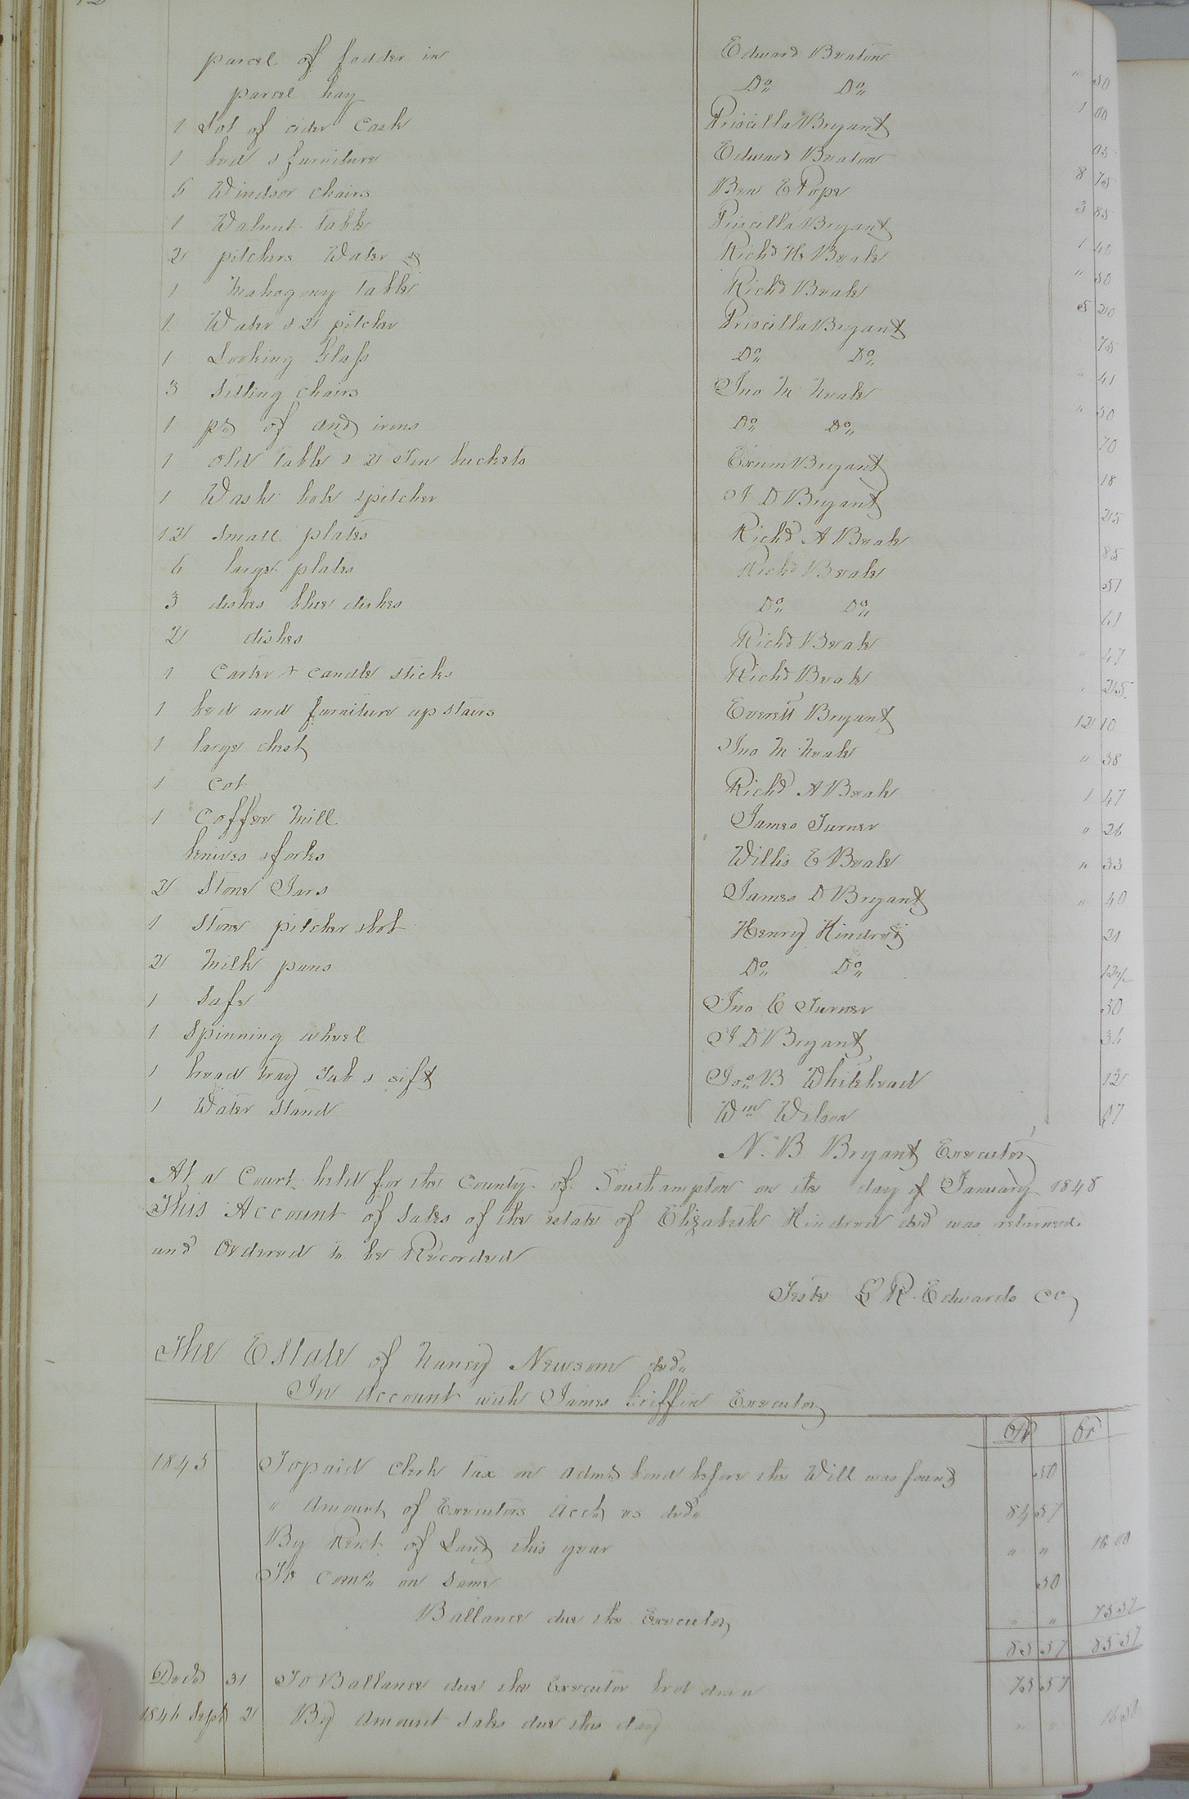 parcel of fodder in Edward Beaton " 50
parcel hay Do Do 1 00
1 Lot of cider Cask Priscilla Bryant
1 bed & furniture Edward Beaton 8 75
6 Windsor chairs Ben E Pope 3 85
1 Walnut Table Priscilla Bryant 1 40
2 pitchers Water & Richd H Beale " 50
1 Mahogony Table Richd Beale 5 20
1 Water & 2 pitcher Priscilla Bryant 75
1 Looking Glass Do Do " 41
3 Sitting chairs Jno M Neale " 50
1 pr of and irons Do Do 70
1 old Table & 2 Tin buckets Exum Bryant 18
1 Wash bole & pitcher J D Bryant 25
12 small plates Richd A Beale 85
6 large plates Richd Beale 51
3 dishes blue dishes Do Do 61
2 dishes Richd Beale " 47
1 Carter & candle sticks Richd Beale " 25
1 bed and furniture up stairs Everett Bryant 12 10
1 large chest Jno M Neale " 38
1 cot Richd A Beale 1 47
1 Coffee Mill James Turner " 26
knives & forks Willis E Beale " 33
2 Stone Jars James D Bryant " 40
1 Stone pitcher & pot Henry Kindred 21
2 Milk pans Do Do 12½
1 Safe Jno E Turner 50
1 Spinning wheel J D Bryant 36
1 bread tray Tub & sift Jos B Whitehead 12
1 Water Stand Wm Wilson 07
N. B Bryant Executor
At a Court held for the County of Southampton on the day of January 1848
This Account of Sales of the estate of Elizabeth Kindred decd was returned
and Ordered to be Recorded
Teste L R. Edwards CC
The Estate of Nancy Newsom decd
In Account with James Griffin Executor
Dr Cr
1845 To paid Clerk tax on Admr bond before the Will was found 50
" Amount of Executors Acct vs decd 84 57
By Rent of Land this year " " 10 00
To comn on Same 50
Ballance due the Executor " " 75 57
85 57 85 57
Decb 31 To Ballance due the Executor brot down 75 57
1846 Sept 2 By Amount Sales due this day " "